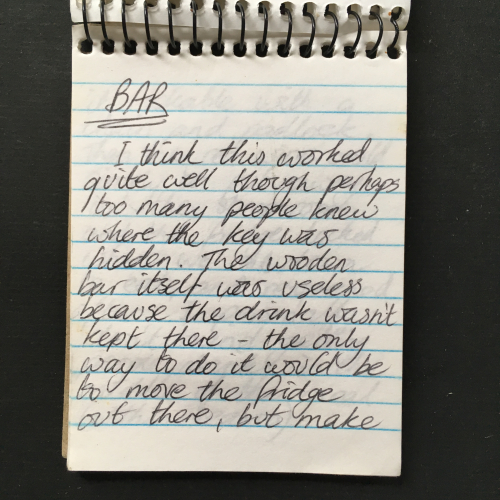 BAR
I think this worked
quite well though perhaps
too many people knew
where the key was
hidden. The wooden
bar itself was useless
because the drink wasn't
kept there - the only
way to do it would be
to move the fridge
out there, but make